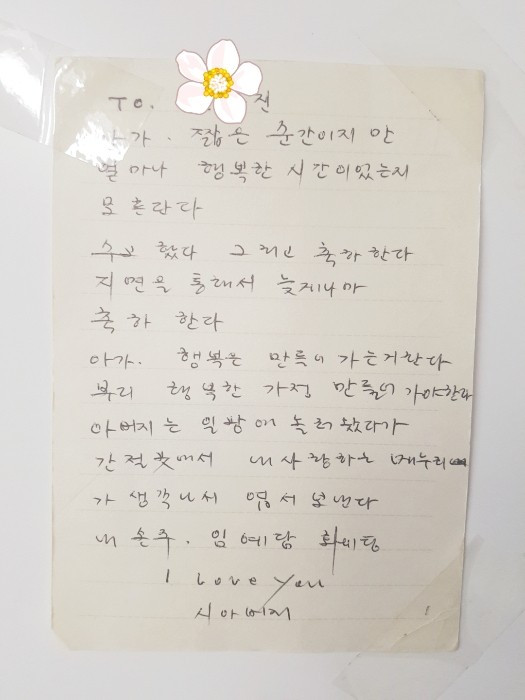 TO. 전
아가. 짧은 순간이지만
얼마나 행복한 시간이었는지
모른단다
수고 했다 그리고 축하한다
지면을 통해서 늦게나마
축하 한다
아가. 행복은 만들어 가는거란다
부디 행복한 가정 만들어 가야한다
아버지는 일팡에 놀러 왔다가
간절곶에서 내 사랑하는 며누리
가 생각나서 엽서 보낸다
내 손주. 임예담 화이팅
I Love You
시아버지